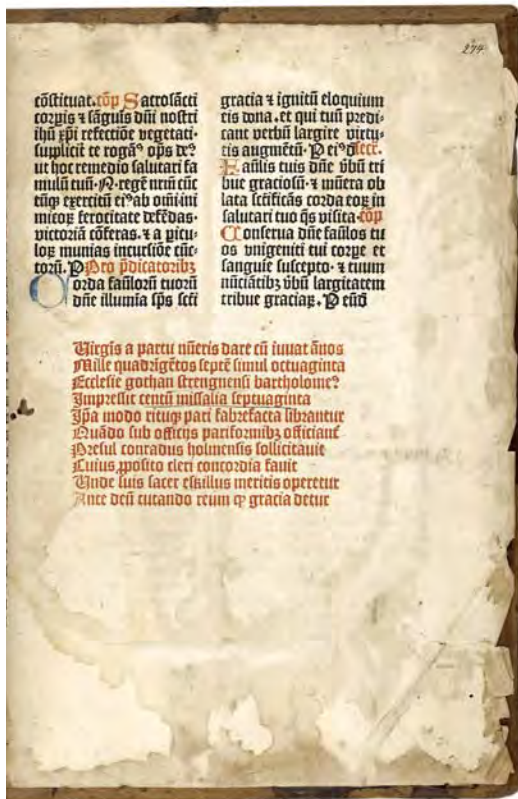 274
cōstituat. cōp̄ Sacrosācti
corpꝭis ⁊ sāguis dn̄i nostri
ihū xp̄i refectiōe vegetati·
supplicit̄ te rogaꝰ op̄s deꝰ
ut hoc remedio salutari fa
mulū tuū·N·regē nrm̄ cūc
tūqꝫ exercitū eiꝰ ab omi ini
micoꝝ ferocitate defēdas·
victoriā cōferas. ⁊ a picu-
loꝝ munias incursiōe cūc-
torū. P Pro p̄dicatoribꝫ
Corda famloꝝ tuorū
dn̄e illumia sp̄s scti
gracia ⁊ ignitū eloquium
eis dona. et qui tuū predi-
cant verbū largire virtu-
tis augmētū· P eiꝰd̄ secr̄.
Famlis tuis dn̄e v̄bū tri
bue graciosū· ⁊ mūera ob
lata sctificās corda eoꝝ in
salutari tuo q̄s visita. cōp̄
Conserua dn̄e famlos tu
os vnigeniti tui corpe et
sanguie suscepto· ⁊ tuum
nūciātibꝫ v̄bū largitatem
tribue graciaꝝ. P eūd̄
Virgīs a partu nūeris dare cū iuuat ānos
Mille quadrīgētos septē simul octuaginta
Ecclesie gothan strengnensi bartholomeꝰ
Impressit centū missalia septuaginta
Ip̄a modo rituqꝫ pari fabrefacta librantur
Quādo sub officijs pariformibꝫ officianť
Presul conradus holmensis sollicitauit
Cuius ꝓposito cleri concordia fauit
Unde suis sacer eskillus meritis operetur
Ante deū cutando reum ꝙ gracia detur